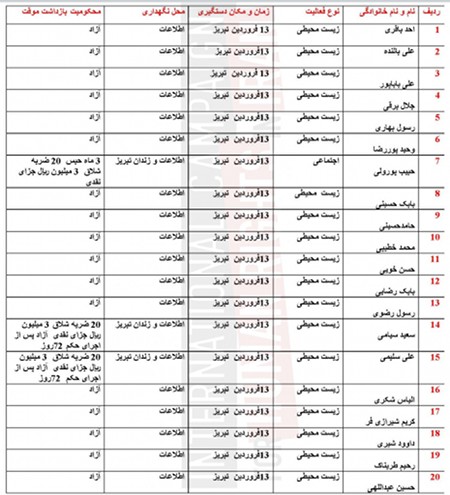 ردیف نام و نام خانوادگی نوع فعالیت زمان و مکان دستگیری محل نگهداری محکومیت بازداشت موقت
1 احد باقری زیست محیطی 13 فروردین تبریز اطلاعات آزاد
2 علی بالنده زیست محیطی 13 فروردین تبریز اطلاعات آزاد
3 علی باباپور زیست محیطی 13فروردین تبریز اطلاعات آزاد
4 جلال برقی زیست محیطی 13فروردین تبریز اطلاعات آزاد
5 رسول بهاری زیست محیطی 13فروردین تبریز اطلاعات آزاد
6 وحید پوررضا زیست محیطی 13فروردین تبریز اطلاعات آزاد
7 حبیب پورولی اجتماعی 13فروردین تبریز اطلاعات و زندان تبریز 3 ماه حبس 20 ضربه
شلاق 3 میلیون ریال جزای
نقدی
8 بابک حسینی زیست محیطی 13فروردین تبریز اطلاعات آزاد
9 حامدحسینی زیست محیطی 13فروردین تبریز اطلاعات آزاد
10 محمد خطیبی زیست محیطی 13فروردین تبریز اطلاعات آزاد
11 حسن خویی زیست محیطی 13فروردین تبریز اطلاعات آزاد
12 بابک رضایی زیست محیطی 13فروردین تبریز اطلاعات آزاد
13 رسول رضوی زیست محیطی 13فروردین تبریز اطلاعات آزاد
14 سعید سیامی زیست محیطی 13فروردین تبریز اطلاعات و زندان تبریز 20 ضربه شلاق 3 میلیون
ریال جزای نقدی آزاد پس از
اجرای حکم 72روز
15 علی سلیمی زیست محیطی 13فروردین تبریز اطلاعات و زندان تبریز 20 ضربه شلاق 3 میلیون
ریال جزای نقدی آزاد پس از
اجرای حکم 72روز
16 الیاس شکری زیست محیطی 13فروردین تبریز اطلاعات آزاد
17 کریم شیرازی فر زیست محیطی 13فروردین تبریز اطلاعات آزاد
18 داوود شیری زیست محیطی 13فروردین تبریز اطلاعات آزاد
19 رحیم طربناک زیست محیطی 13فروردین تبریز اطلاعات آزاد
20 حسین عبداللهی زیست محیطی 13فروردین تبریز اطلاعات آزاد
INTERNATIONAL CAMPAIGN